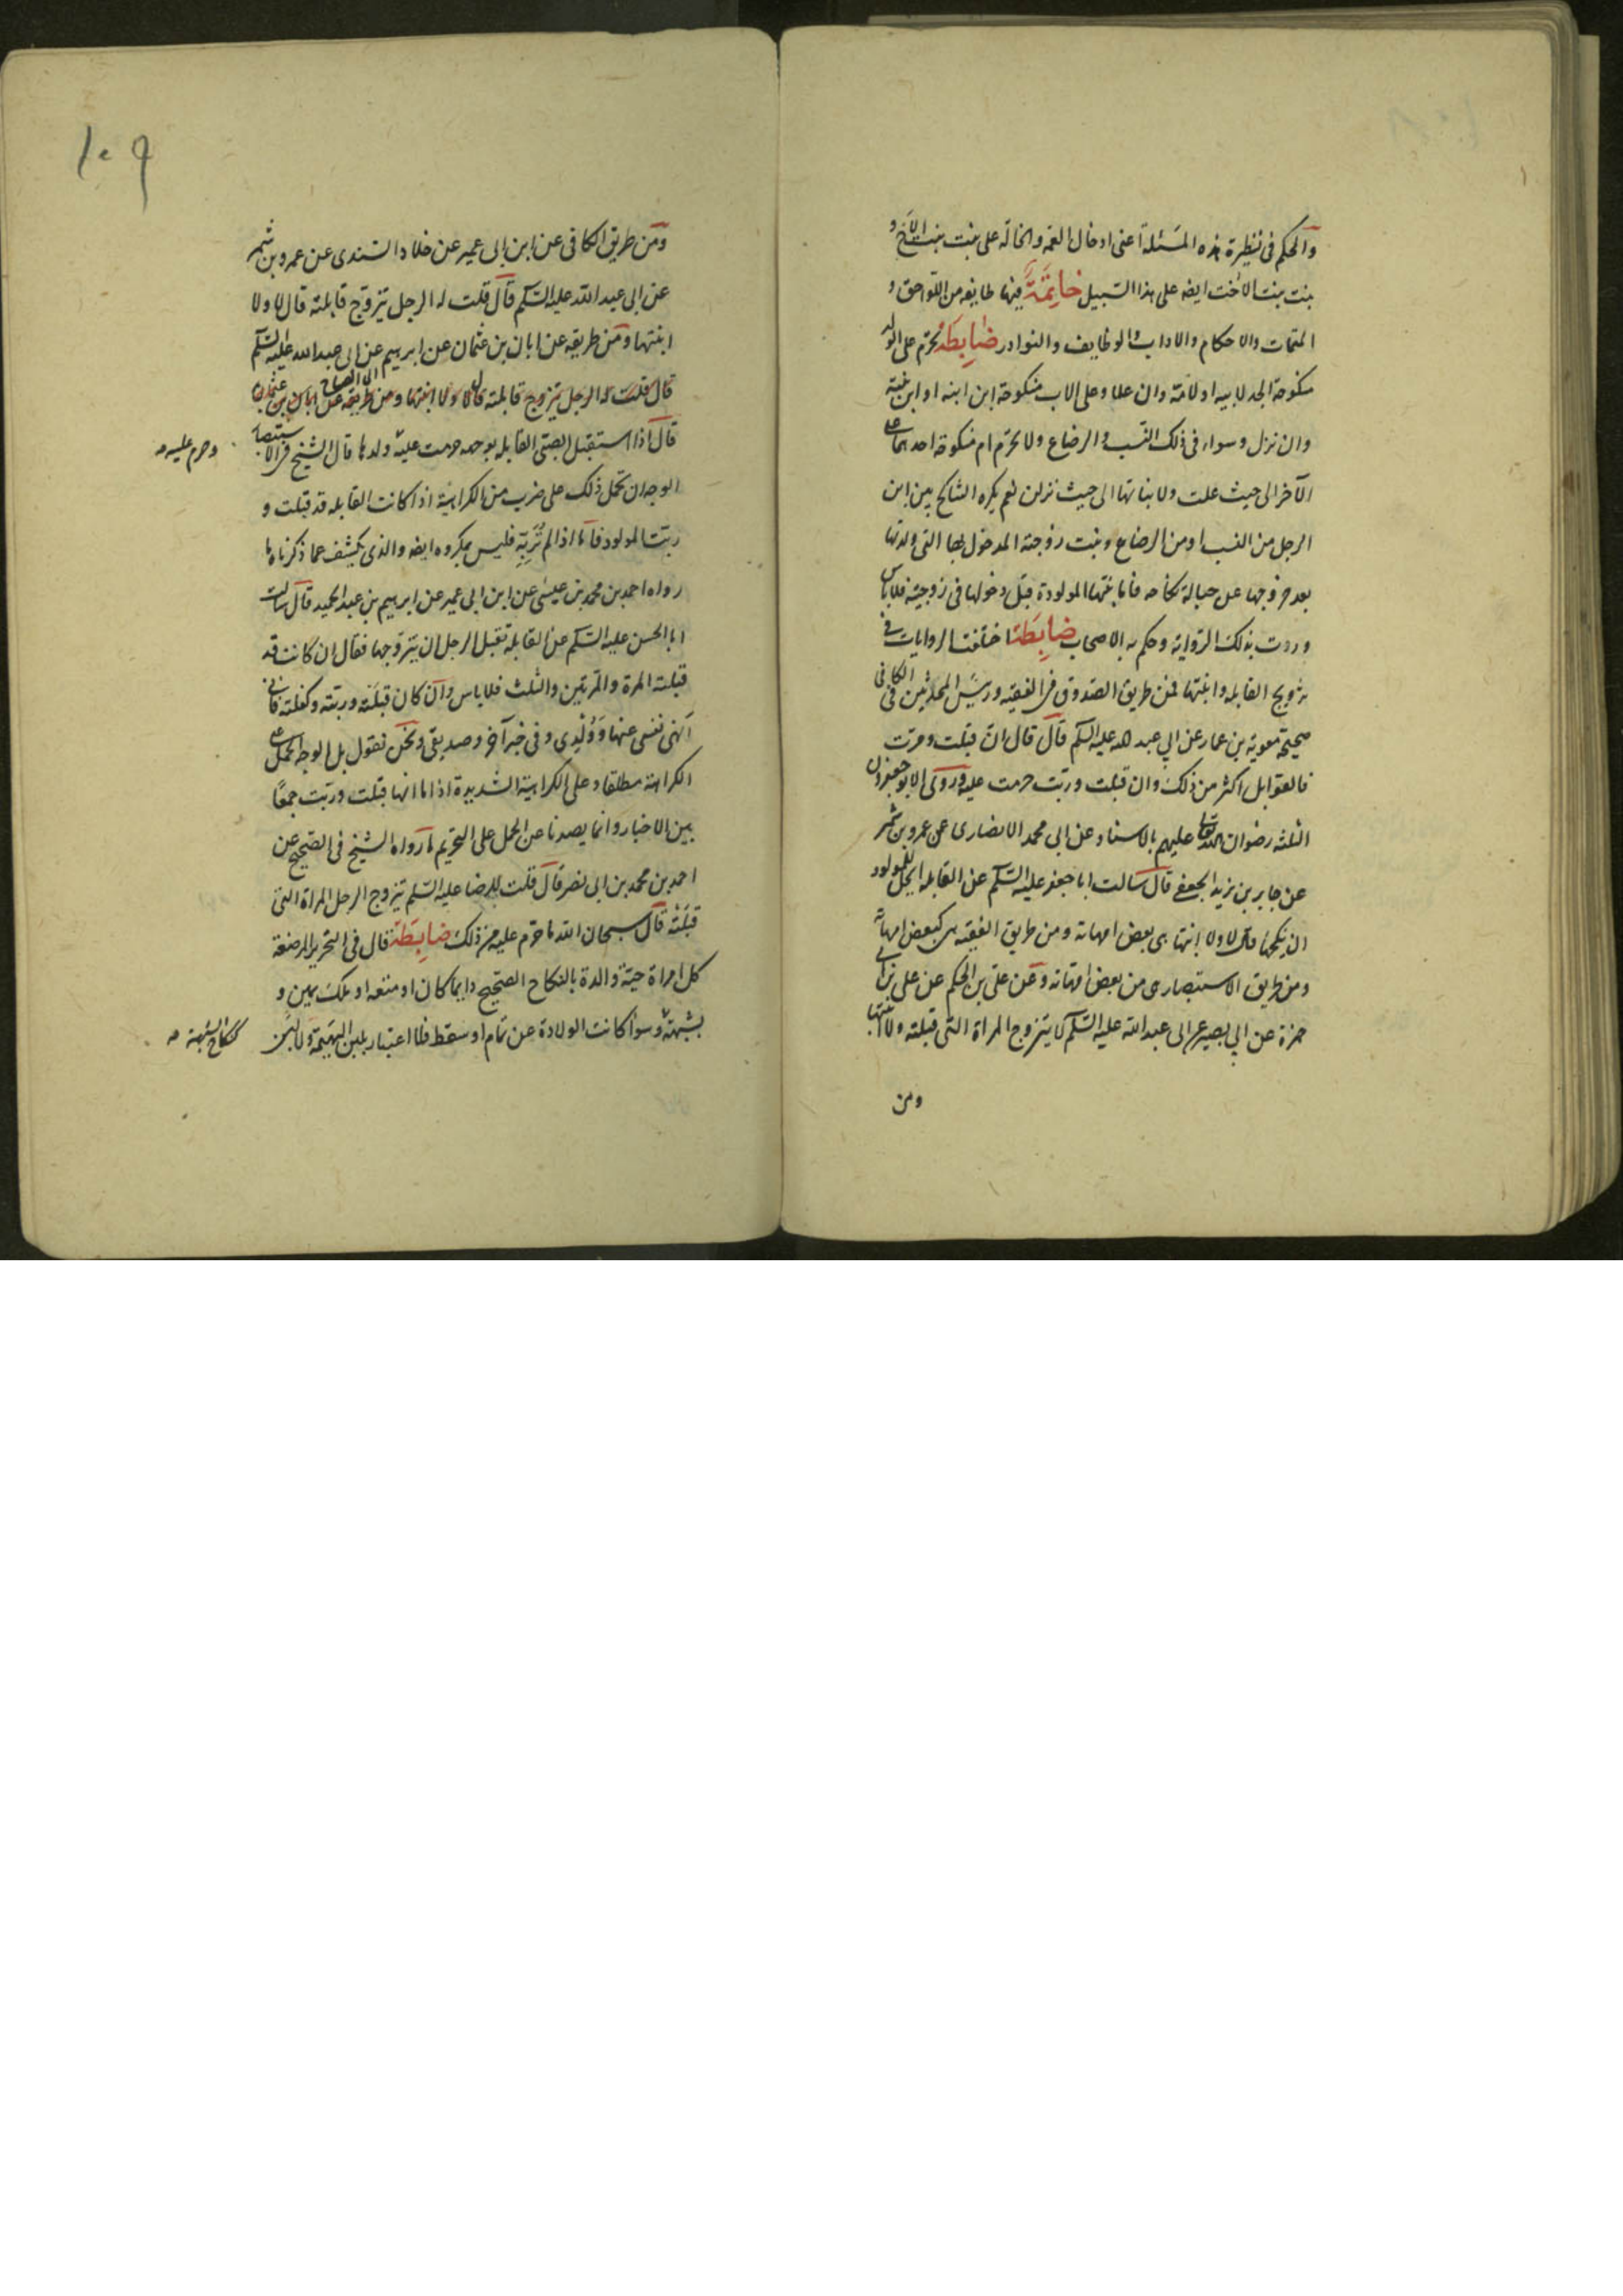 والحكم فى نظيرة هذه المسئلة اعنى ادخال العمة والخالة على بنت بنت الاخ و
بنت بنت الاخت ايضه على هذا السبيل خاتمة فيها طايفه من اللواحق و
المتممات والاحكام والاداب والوظايف والنوادر ضابطة تحرم على الولد
منكوحة الجد لابيه او لامه وان علا وعلى الاب منكوحة ابن ابنه او ابن بنته
وان نزل وسواء فى ذلك النسب والرضاع ولا تحرم ام منكوحة احدهما على
الآخر الى حيث علت ولا بناتها الى حيث نزلن نعم يكره التناكح بين ابن
الرجل من النسب او من الرضاع وبنت زوجته المدخول بها التى ولدتها
بعد خروجها عن حبالة نكاحه فاما بنتها المولودة قبل دخولها فى زوجيته فلا باس
وردت بذلك الرواية وحكم به الاصحاب ضابطة اختلفت الروايات فى
تزويج القابله وابنتها فمن طريق الصدوق فى الفقيه ورئيس المحدثين فى الكافى
صحيحة معوية بن عمار عن ابي عبد الله عليه السلم قال قال ان قبلت ومرت
فالقوابل اكثر من ذلك وان قبلت وربت حرمت عليه وروى الابو جعفرون
الثلثه رضوان الله تعالى عليهم بالاسناد عن ابى محمد الانصارى عن عمرو بن شمر
عن جابر بن يزيد الجعفى قال سالت ابا جعفر عليه السلم عن القابله ايحل للمولود
ان ينكحها قال لا ولا ابنتها هى بعض امهاته ومن طريق الفقيه هى كبعض امهاته
ومن طريق الاستبصار هى من بعض امهاته وعن على بن الحكم عن على بن ابى
حمزة عن ابي بصير عن ابى عبد الله عليه السلم لا يتزوج المراة التى قبلته ولا ابنتها
ومن
١٠٩
ومن طريق الكافى عن ابن ابى عمير عن خلاد السندى عن عمرو بن شمر
عن ابى عبد الله عليه السلم قال قلت له الرجل يتزوج قابلته قال لا ولا
ابنتها ومن طريقه عن ابان بن عثمان عن ابرهيم عن ابى عبد الله عليه السلم
قال قلت له الرجل يتزوج قابلته قال لا ولا ابنتها ومن طريقه عن ابان بن عثمان
قال اذا استقبل الصبى القابله بوجهه حرمت عليه ولدها قال الشيخ فى الاستبصار
وحرم عليه صه
الوجه ان تحمل ذلك على ضرب من الكراهية اذا كانت القابله قد قبلت و
ربت المولود فاما اذا لم تربه فليس بمكروه ايضه والذى يكشف عما ذكرناه ما
رواه احمد بن محمد بن عيسى عن ابن ابى عمير عن ابرهيم بن عبد الحميد قال سالت
ابا الحسن عليه السلم عن القابله تقبل الرجل ان يتزوجها فقال ان كانت قد
قبلته المرة والمرتين والثلث فلا باس وان كان قبلته وربته وكفلته فانى
انهى نفسى عنها وولدى وفى خبر آخر وصديقى ونحن نقول بل الوجه الحمل على
الكراهة مطلقا وعلى الكراهية الشديدة اذا ما انها قبلت وربت جمعا
بين الاخبار وانما يصدنا عن الحمل على التحريم ما رواه الشيخ فى الصحيح عن
احمد بن محمد بن ابى نصر قال قلت للرضا عليه السلم يتزوج الرجل المراة التى
قبلته قال سبحان الله ما حرم عليه من ذلك ضابطة قال فى التحرير المرضعة
كل امراة حية والدة بالنكاح الصحيح دايما كان او متعه او ملك يمين و
بشبهة وسوأ كانت الولادة عن تمام او سقط فلا اعتبار بلبن البهيمة ولا لبن
كنكاح الشبهة صه